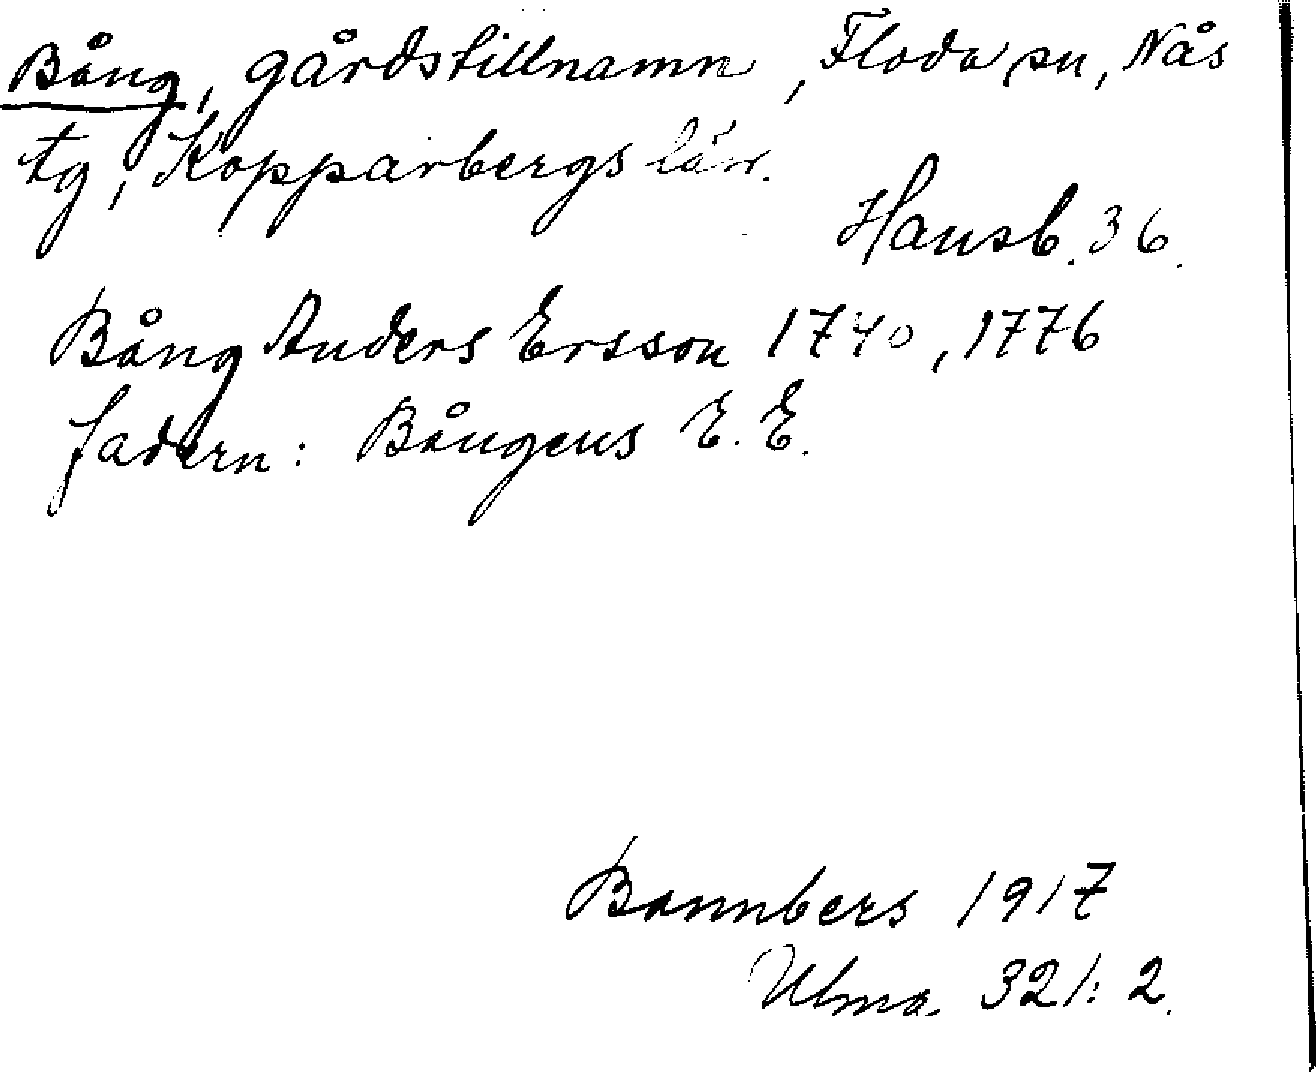 Bång, gårdstillnamn, Floda sn, Nås
tg, Kopparbergs län.
Hansb. 36.
Bång Anders Ersson 1740, 1776
fadern: Bångens E. E.
Bannbers 1917
Ulma. 321: 2.